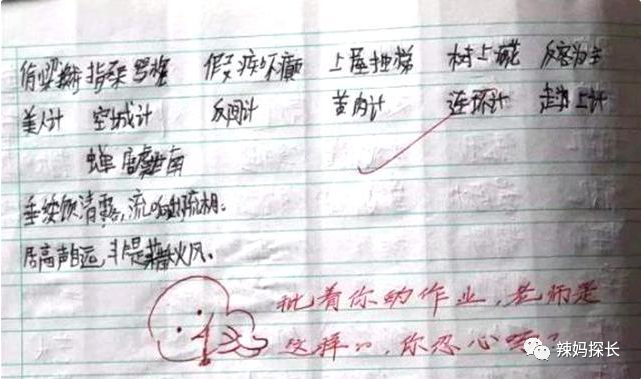 偷梁换柱 指桑骂槐 上屋抽梯 反客为主
美人计 空城计 反间计 苦肉计 连环计 走为上计
蝉 唐 虞世南
垂緌饮清露,流响出疏桐。
居高声自远,非是藉秋风。
批着你的作业,老师是
这样的,你忍心吗?
辣妈探长